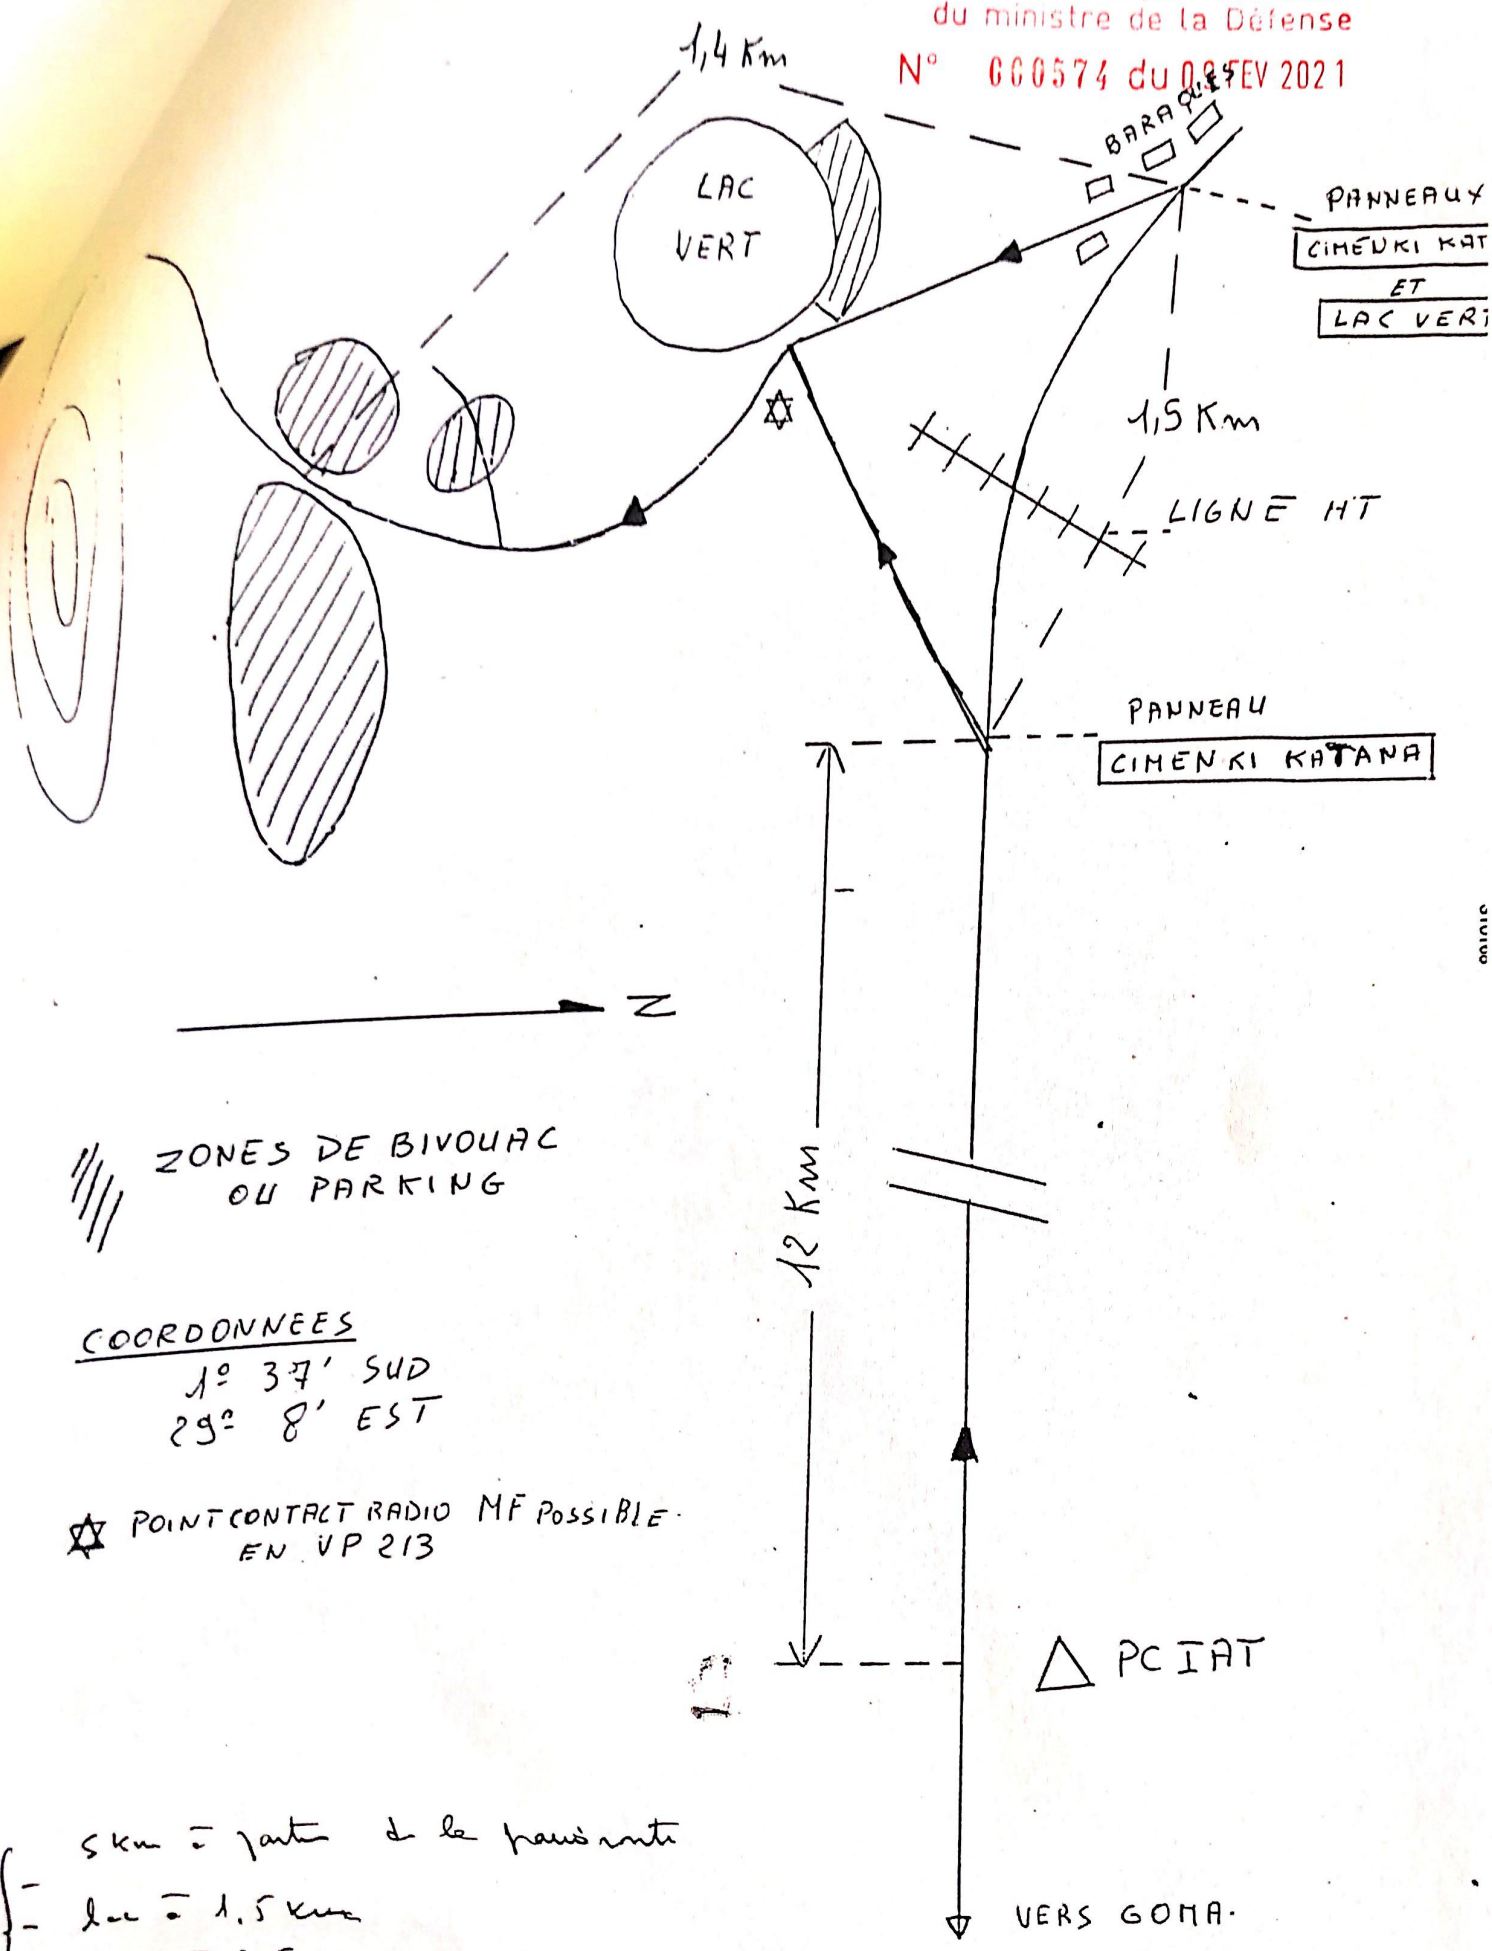 du ministre de la Défense
N° 000574 du 09 FEV 2021
1,4 Km
BARAQUES
LAC
VERT
PANNEAUX
CIMENKI KAT
ET
LAC VERT
1,5 Km
LIGNE HT
PANNEAU
CIMENKI KATANA
N
12 Km
ZONES DE BIVOUAC
OU PARKING
COORDONNEES
1° 37' SUD
29° 8' EST
POINT CONTACT RADIO MF POSSIBLE.
EN VP 213
PC IAT
5 km à partir de la
lac à 1.5 km
VERS GOMA.